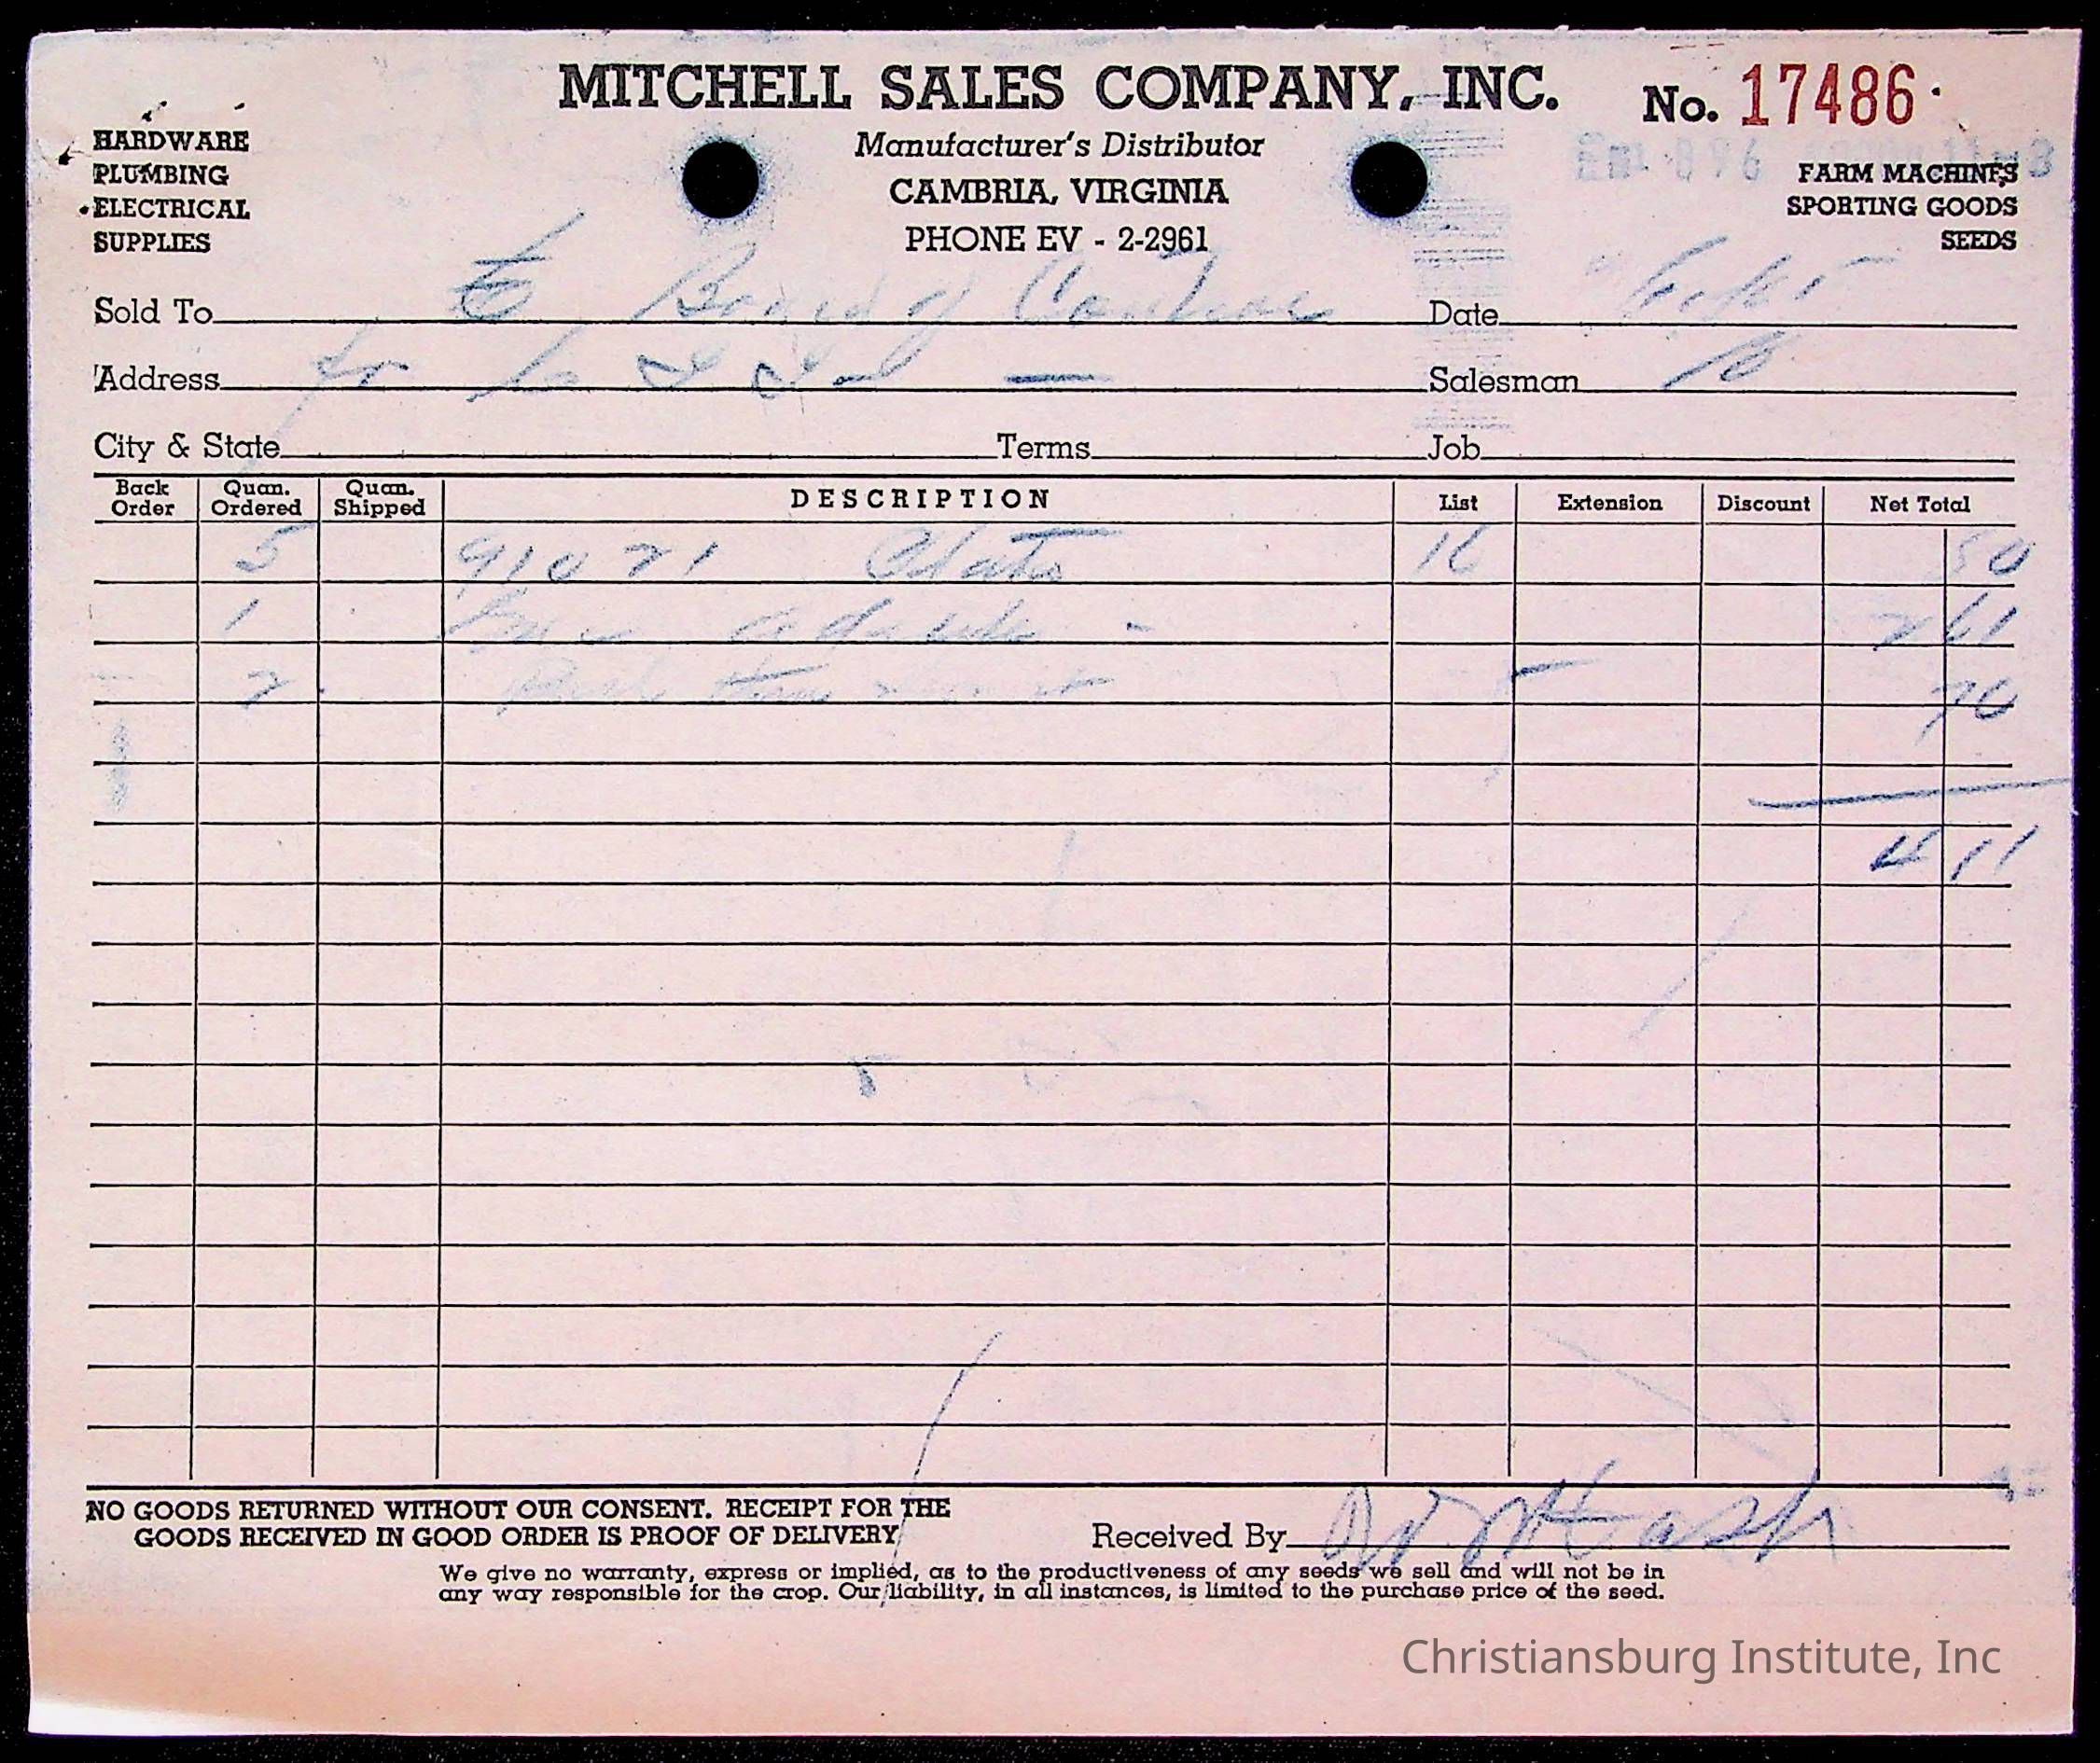 MITCHELL SALES COMPANY, INC.
No. 17486
Manufacturer's Distributor
CAMBRIA, VIRGINIA
PHONE EV - 2-2961
HARDWARE
PLUMBING
ELECTRICAL
SUPPLIES
FARM MACHINES
SPORTING GOODS
SEEDS
Sold To Date
Address Salesman B
City & State Terms Job
Back Order Quan. Ordered Quan. Shipped DESCRIPTION List Extension Discount Net Total
5 91071 16 80
1 2 61
2 70
4 11
NO GOODS RETURNED WITHOUT OUR CONSENT. RECEIPT FOR THE
GOODS RECEIVED IN GOOD ORDER IS PROOF OF DELIVERY
Received By
We give no warranty, express or implied, as to the productiveness of any seeds we sell and will not be in
any way responsible for the crop. Our liability, in all instances, is limited to the purchase price of the seed.
Christiansburg Institute, Inc